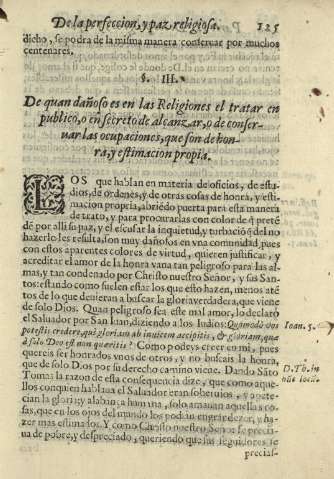 De la perfeccion, y paz religiosa. 125
dicho, se podra de la misma manera conseruar por muchos
centenares.
§. III.
De quan dañoso es en las Religiones el tratar en
publico, o en secreto de alcanzar, o de conser-
uar las ocupaciones, que son de hon-
ra, y estimacion propia.
LOS que hablan en materia de oficios, de estu-
dios, de ordenes, y de otras cosas de honra, y esti-
macion propria, abriẽdo puerta para esta manera
de trato, y para procurarlas con color de q̃ pretẽ
dẽ por alli su paz, y el escusar la inquietud, y turbaciõ q̃ del no
hazerlo les resulta, son muy dañosos en vna comunidad, pues
con estos aparentes colores de virtud, quieren justificar, y
acreditar el amor de la honra vana tan peligroso para las al-
mas, y tan condenado por Christo nuestro Señor, y sus San-
tos: estando como suelen estar los que esto hazen, menos atẽ
tos de lo que deuieran a buscar la gloria verdadera, que viene
de solo Dios. Quan peligroso sea este mal amor, lo declarò
el Saluador por San Iuan, diziendo a los Iudios: Quomodò vos
potestis credere, qui gloriam ab inuicem accipitis, & gloriam, quæ
à solo Deo est non quæritis? Como podeys creer en mi, pues
quereis ser honrados vnos de otros, y no buscais la honra,
que de solo Dios por su derecho camino viene. Dando Sãto
Tomas la razon de esta consequencia dize, que como aque-
llos con quien hablaua el Saluador eran soberuios, y apete-
cian la gloria, y alabança humana, solo amauan aquellas co-
sas, que en los ojos del mundo los podian engrandezer, y ha-
zer mas estimados. Y como Christo nuestro Señor se precia-
ua de pobre, y despreciado, queriendo que sus seguidores se
precias-
Ioan. 5.
D. Th. in